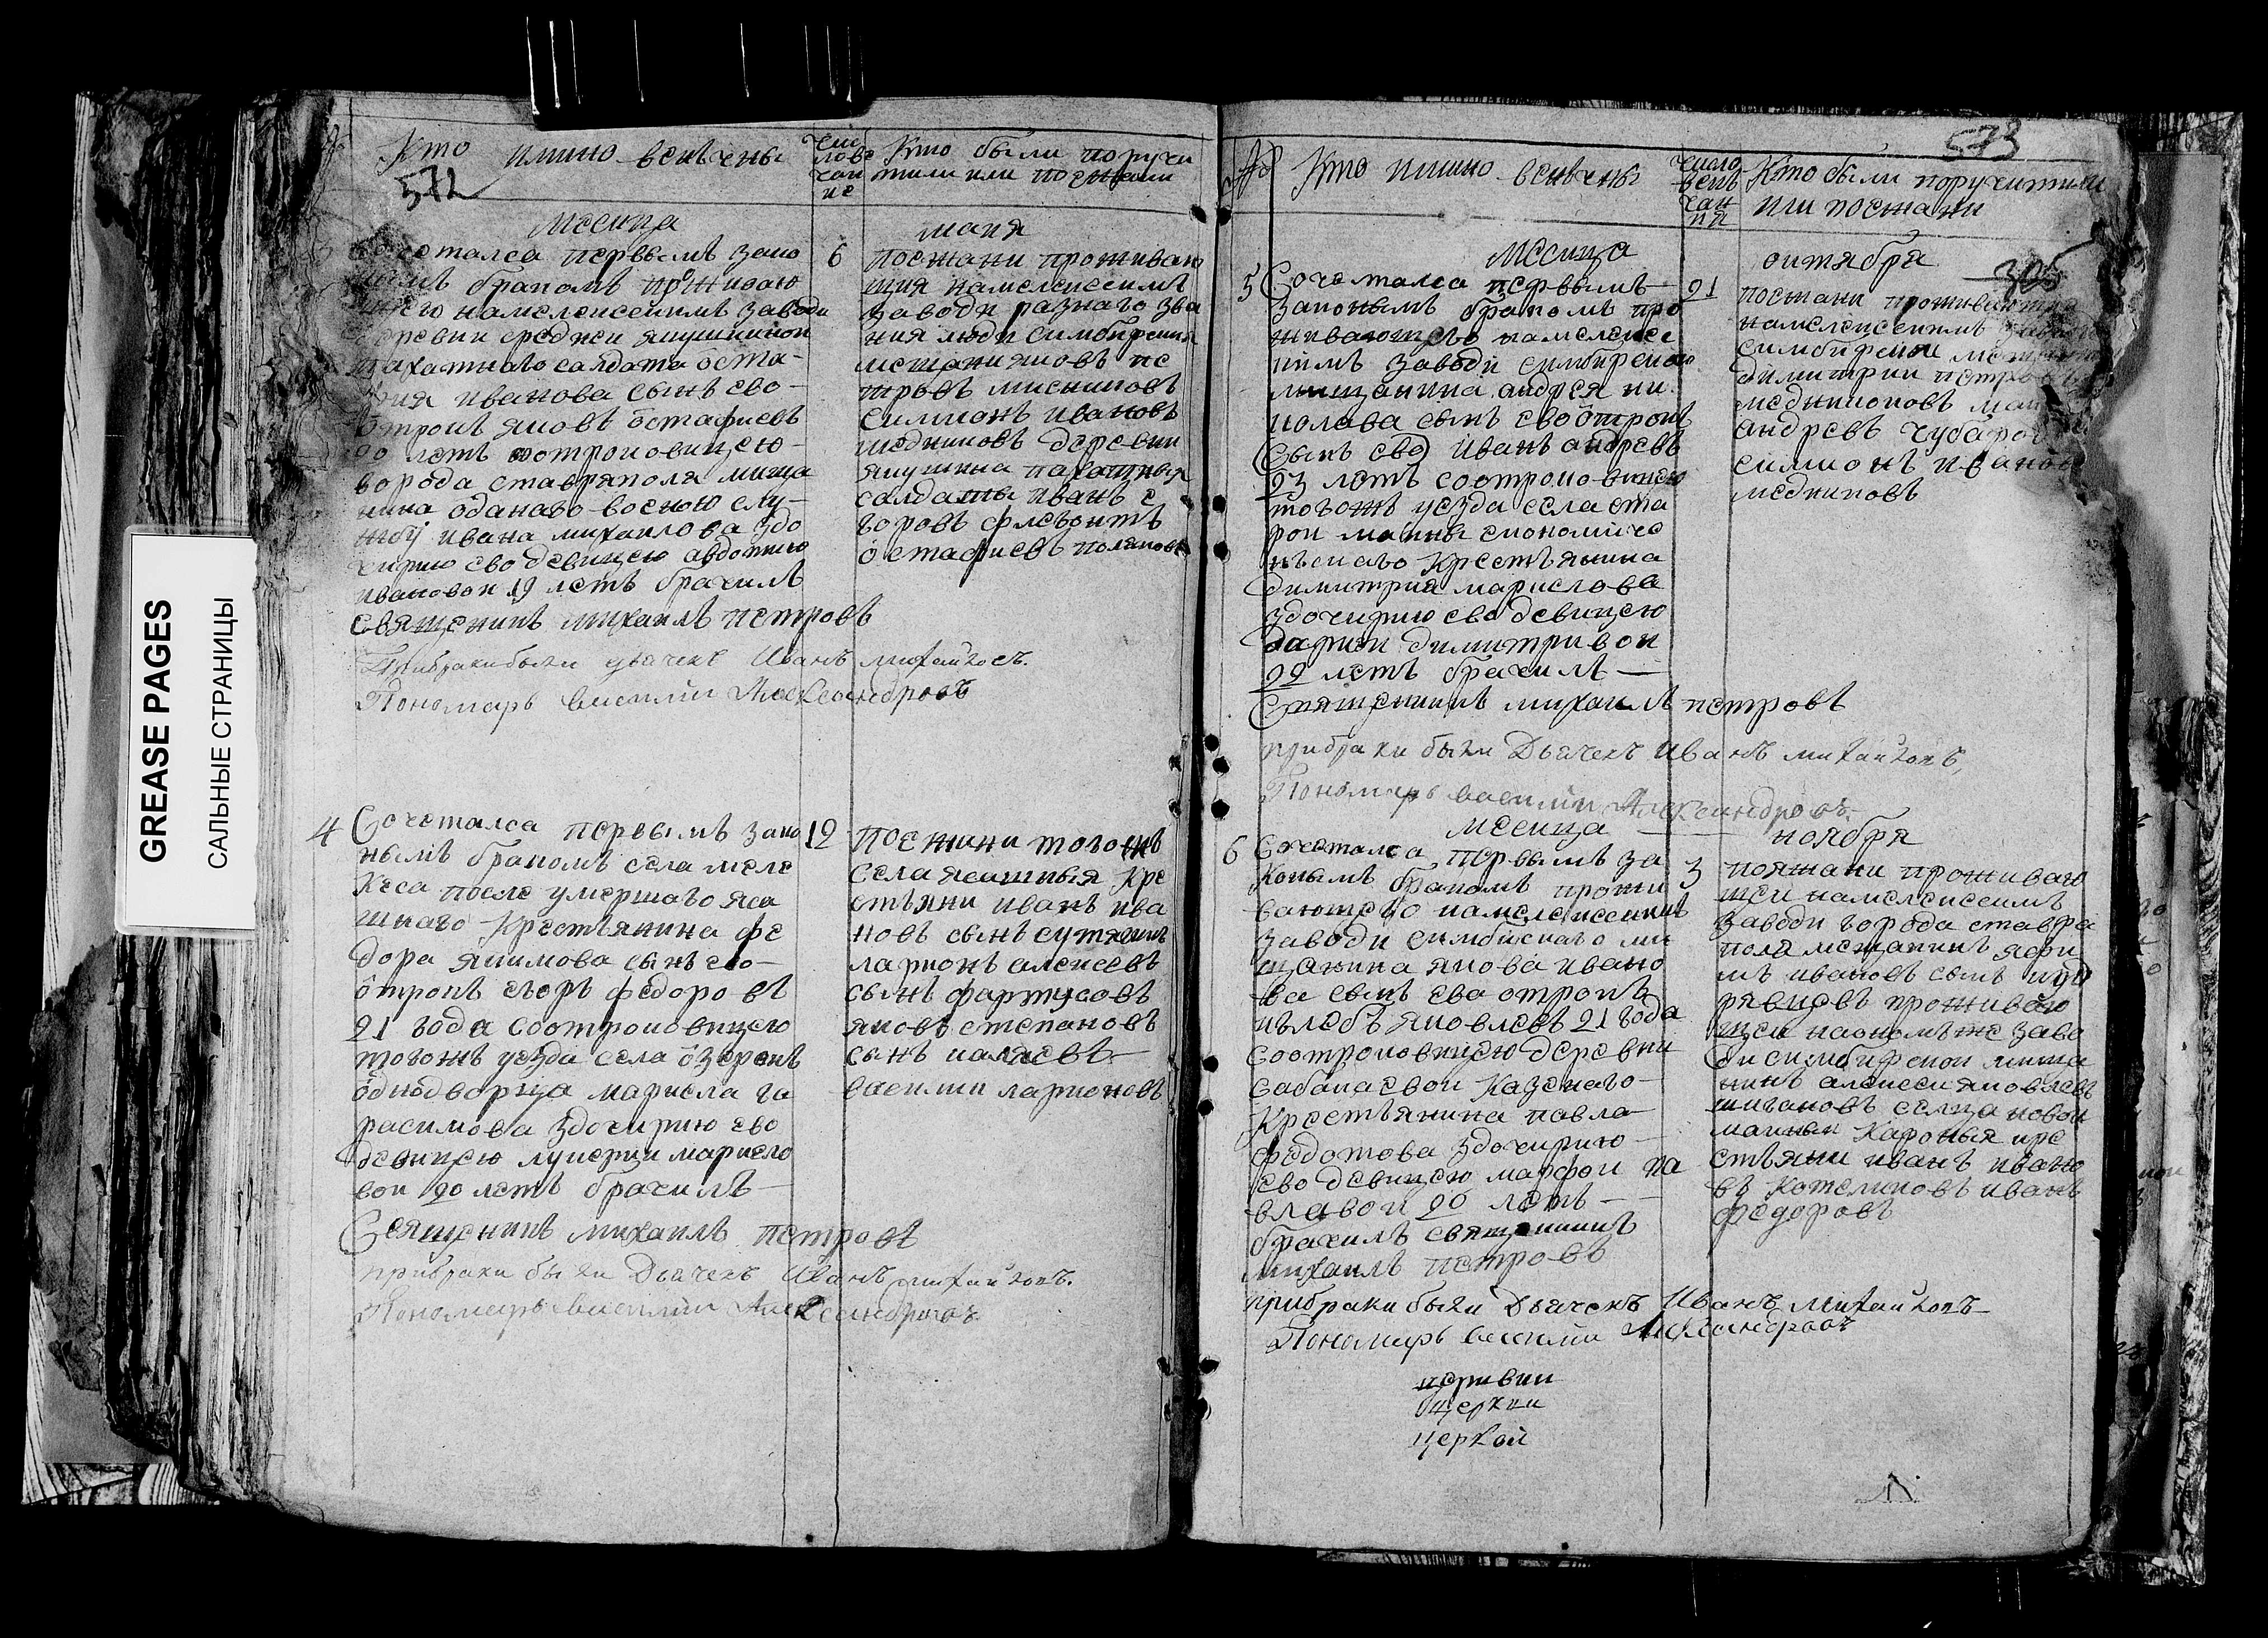 GREASE PAGES
САЛЬНЫЕ СТРАНИЦЫ
№
Кто имено венчены
572
числове
чан
ие
Кто были поручи
тили или поежани
месица
маия
сочеталса первымъ зако
нымъ бракомъ проживаю
щаго намелекескимъ заводи
деревни средней якушкиной
пахатнаго салдата оста-
фия иванова сынъ ево-
отрокъ яковъ остафиевъ
20 летъ соотроковицею-
города ставрополя меща
нина оданаго военою слу-
жбу ивана михаилова здо
чирию ево девицею авдотию
ивановои 19 летъ брачилъ
священикъ михаилъ петровъ
6
поежани проживаю
щия намелекескимъ
заводи разнаго зва
ния люди симбирския
мещани яковъ пе
тровъ мясниковъ
симионъ ивановъ
медниковъ деревни
якушкина пахатныя
салдаты иванъ е
горовъ флегонтъ
остафиевъ поляковъ
Прибраки были дьячекъ Иванъ михайловъ.
Пономарь василии Александровъ
4
Сочеталса первымъ зако
нымъ бракомъ села меле
кеса после умершаго яса
шнаго Крестьянина фе
дора якимова сынъ ево-
отрокъ егоръ федоровъ
21 года соотроковицею
тогожъ уезда села озерокъ
однодворца марисла га
расимова здочирию ево
девицею лукерии марисло
вои 20 летъ брачилъ-
Священикъ михаилъ петровъ
12
Поежани тогожъ
села ясашныя Кре
стьяни иванъ ива
новъ сынъ сутягинъ
ларионъ алексеевъ
сынъ фартусовъ
яковъ степановъ
сынъ
василии ларионовъ
прибраки были Дьячекъ Иванъ михайловъ.
Пономарь василии Александровъ
573
№
Кто имино венчены
число
венъ
чан
ия
Кто были поручители
или поежани
305
месица
октября
5
Сочеталса первымъ-
законымъ бракомъ про
живающего намелекес
кимъ заводи симбирского
мищанина андрея ни
колава сынъ ево отрокъ
(сынъ ево) иванъ андревъ
23 летъ соотроковицею
тогожъ уезда села ста
рои маины економиче
нъскаго Крестьянина
димитрия марислова
здочирию ево девицею
дарии димитривои
22 летъ брачилъ-
Священикъ михаилъ петровъ
21
поежани проживающия
намелекескимъ заводи
симбирскои
димитрии петровъ
медниковъ
андревъ
симионъ ивановъ
медниковъ
прибраки были Дьячекъ Иванъ михайловъ,
Пономарь василии Александровъ
месица
ноября
6
Сочеталса первымъ за
Конымъ бракомъ прожи
вающего намелекескимъ
заводи симбискаго ми
щанина якова ивано
ва сынъ ева отрокъ
глебъ яковлевъ 21 года
соотроковицею деревни
сабакаевои Казенаго-
Крестьянина павла
федотова здочирию-
ево девицею марфои па
влавои 20 летъ-
брачилъ священикъ
михаилъ петровъ
3
поежани проживаю
щеи намелекескимъ
заводи города ставра
поля мещанинъ
ивановъ сынъ
проживаю
щеи
ди симбирскои меща
нинъ алексеи яковлевъ
шигановъ селца новои
маины Кароныя кре
стьяни иванъ ивано
въ Котелниковъ иванъ
федоровъ
прибраки были Дьячекъ Иванъ Михайловъ
Пономарь василии Александровъ
церкви
церкви
церкви